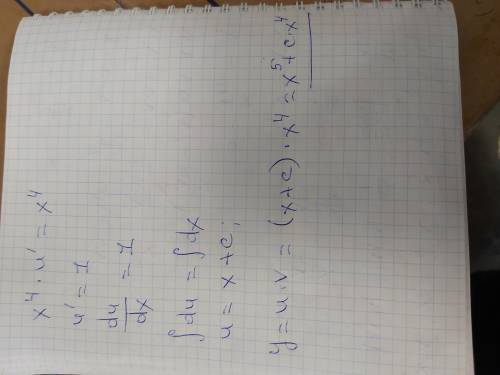 x⁴ · u' = x⁴
u' = 1
du/dx = 1
∫du = ∫dx
u = x + c;
y = u·v = (x+c) · x⁴ = x⁵ + c·x⁴